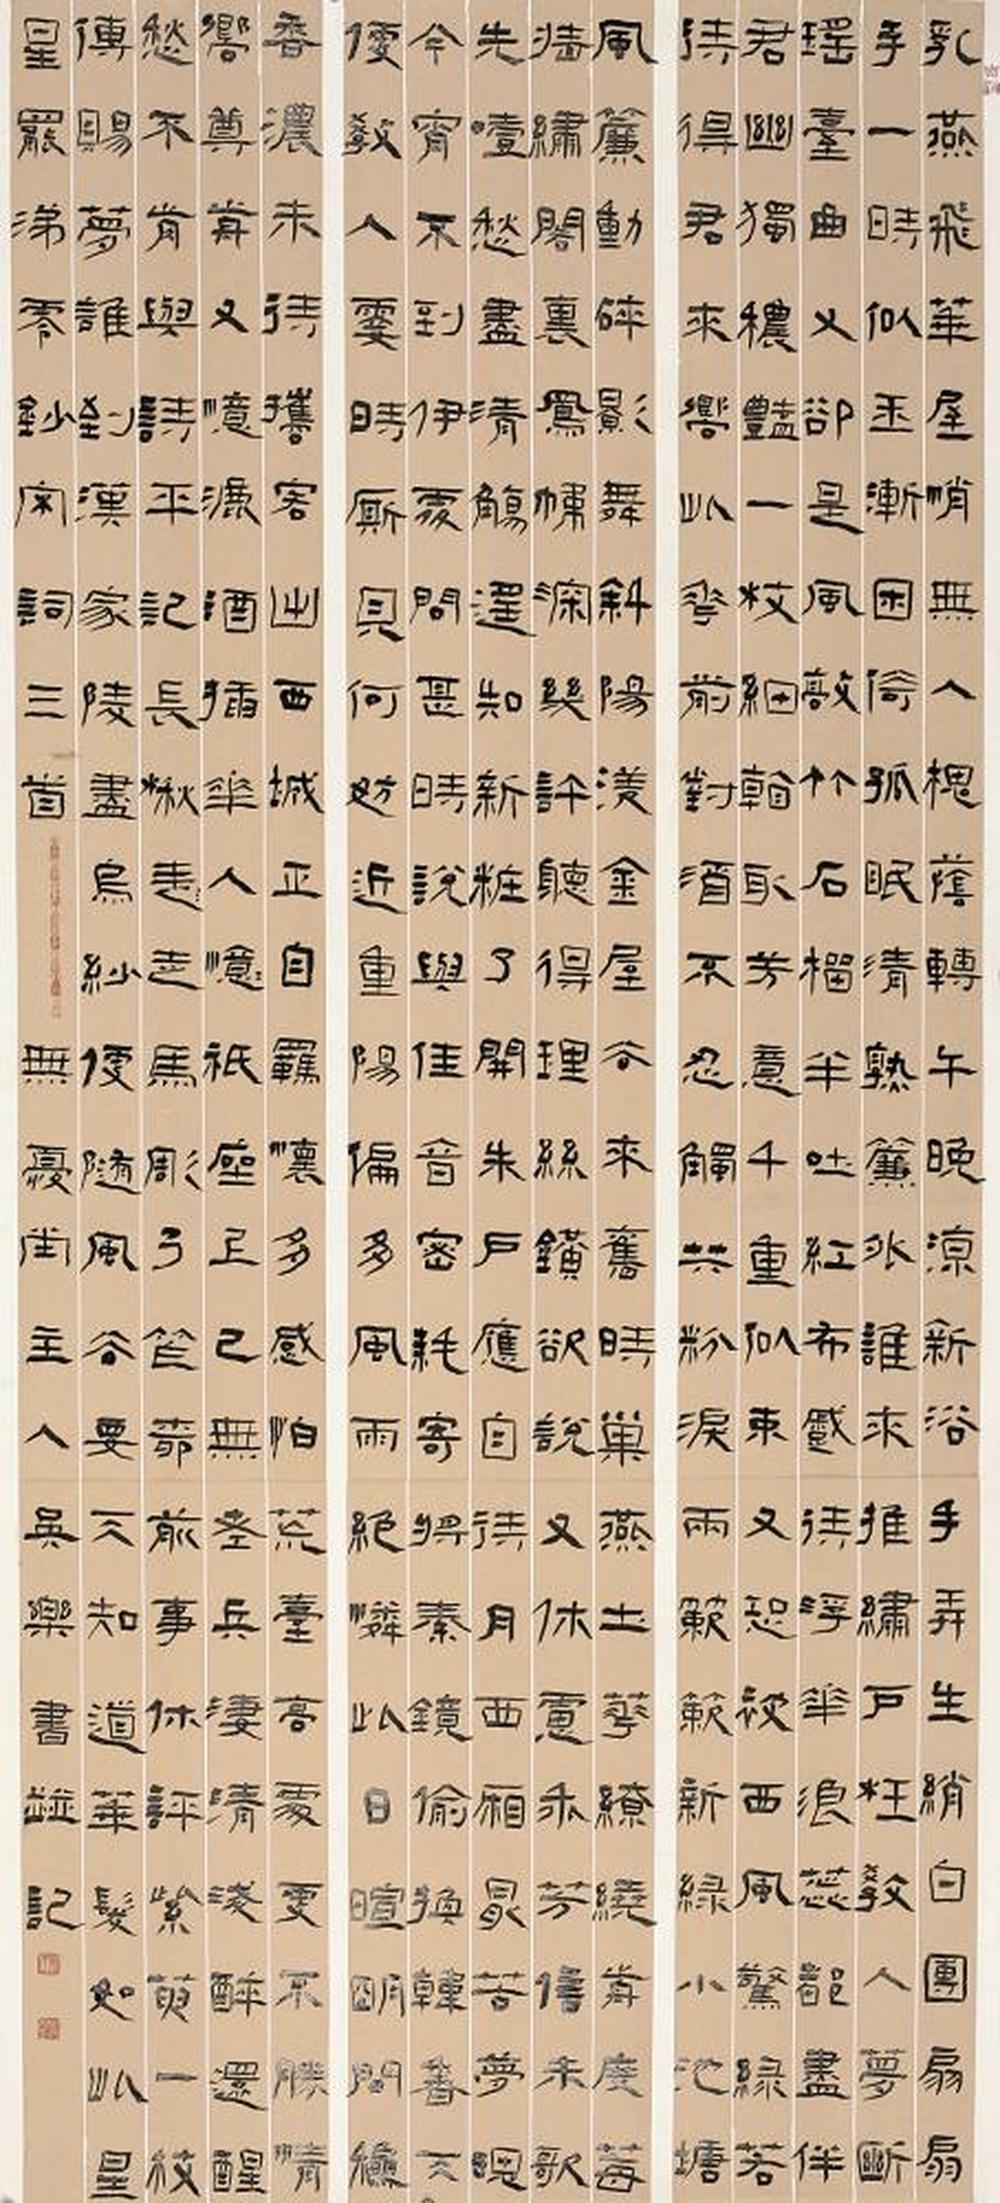 乳燕飛華屋悄無人槐蔭轉午晚涼新浴手弄生綃白團扇扇
手一時似玉漸困倚孤眠清熟簾外誰來推繡戶枉教人夢斷
瑤臺曲又卻是風敲竹石榴半吐紅布蹙待浮華浪蕊都盡伴
君幽獨穠豔一枝細看取芳意千重似束又恐被西風驚綠若
待得君來嚮此花前對酒不忍觸共粉淚兩簌簌新綠小池塘
風簾動碎影舞斜陽羨金屋去來舊時巢燕土花繚繞前度莓
牆繡閣裏鳳幃深幾許聽得理絲簧欲說又休慮乖芳信未歌
先噎愁盡清觴遙知新粧了開朱戶應自待月西廂最苦夢魂
今宵不到伊處問甚時說與佳音密耗寄將秦鏡偷換韓香天
便教人霎時廝見何妨近重陽偏多風雨絕憐此日暄明問
香濃未待攜客出西城正自羈懷多感怕荒臺高處更不勝情
嚮尊前又憶漉酒插華人憶祇座上已無老兵淒清淺醉還醒
愁不肯與詩平記長楸走走馬彫弓前事休評紫萸一枝
傳賜夢誰到漢家陵盡烏紗便隨風去要天知道華髮如此星
星罷涕零鈔宋詞三首
無憂主人吳樂書並記